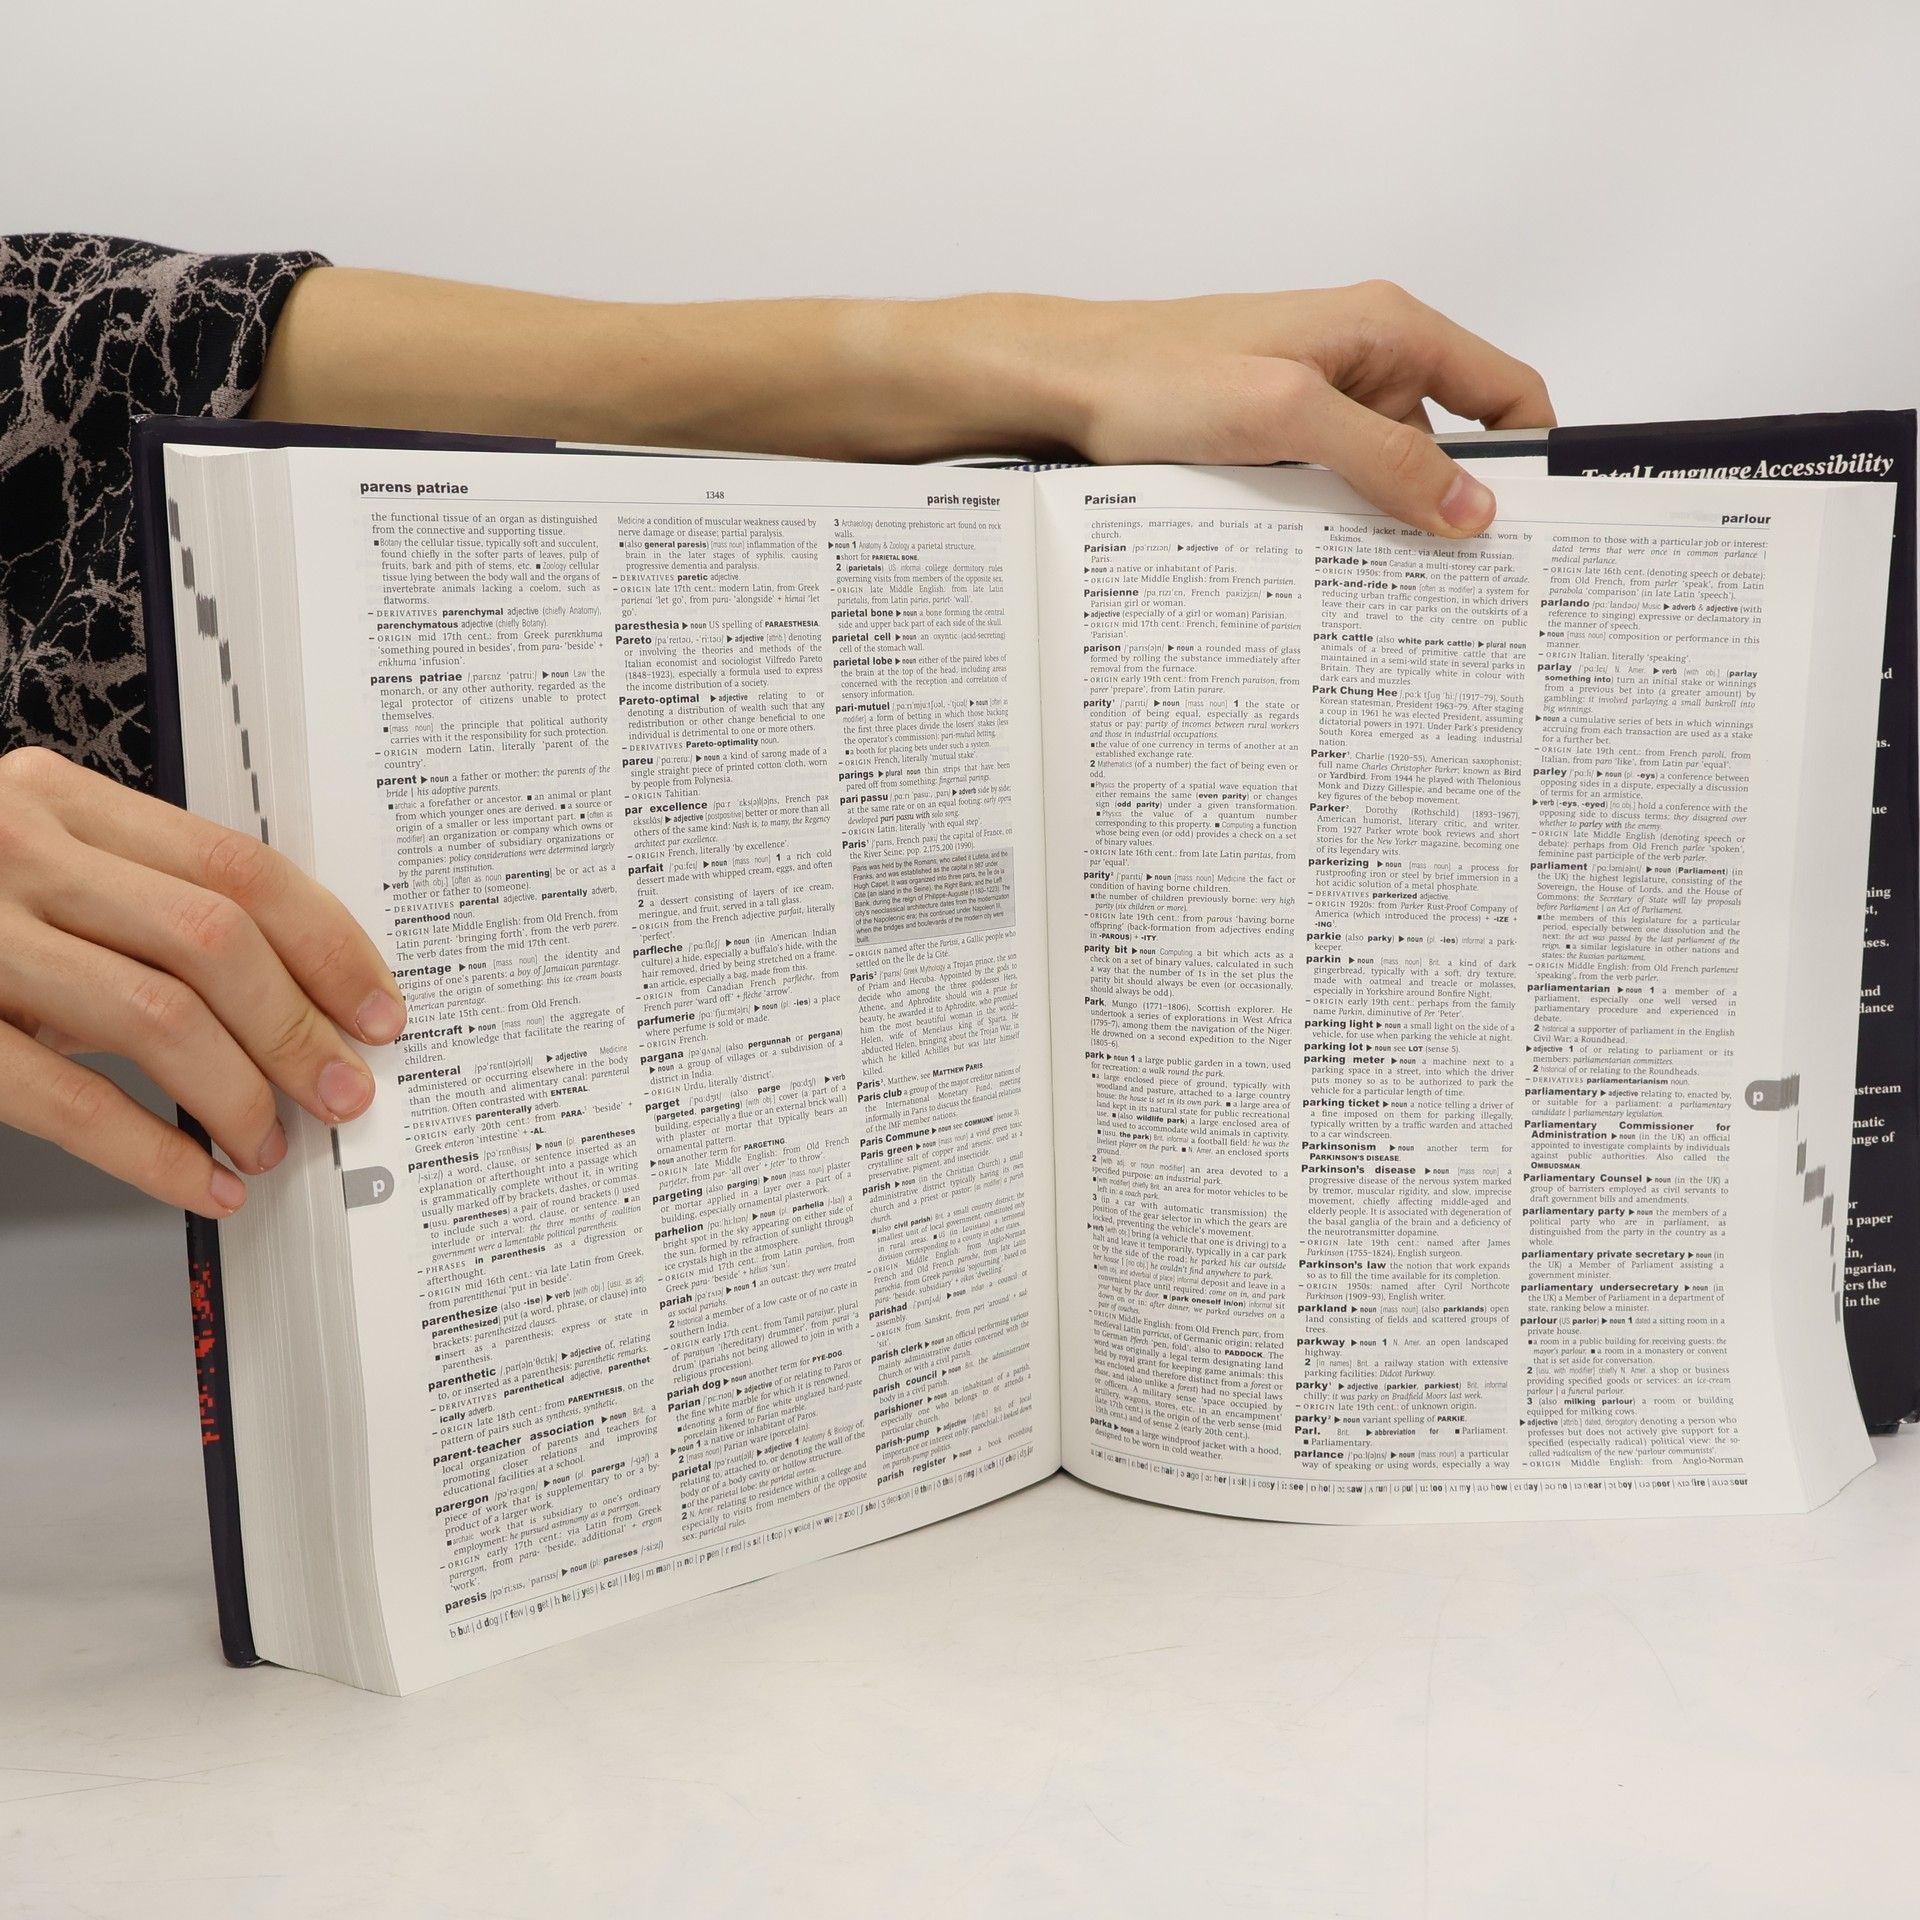 Total Language Accessibility
parens patriae
1348
parish register
the functional tissue of an organ as distinguished
from the connective and supporting tissue.
■ Botany the cellular tissue, typically soft and succulent,
found chiefly in the softer parts of leaves, pulp of
fruits, bark and pith of stems, etc. ■ Zoology cellular
tissue lying between the body wall and the organs of
invertebrate animals lacking a coelom, such as
flatworms.
– DERIVATIVES parenchymal adjective (chiefly Anatomy),
parenchymatous adjective (chiefly Botany).
– ORIGIN mid 17th cent.: from Greek parenkhuma
'something poured in besides', from para- 'beside' +
enkhuma 'infusion'.
parens patriae ▶ noun Law the
monarch, or any other authority, regarded as the
legal protector of citizens unable to protect
themselves.
■ [mass noun] the principle that political authority
carries with it the responsibility for such protection.
– ORIGIN modern Latin, literally 'parent of the
country'.
parent ▶ noun a father or mother: the parents of the
bride | his adoptive parents.
■ archaic a forefather or ancestor. ■ an animal or plant
from which younger ones are derived. ■ a source or
origin of a smaller or less important part. ■ [often as
modifier] an organization or company which owns or
controls a number of subsidiary organizations or
companies: policy considerations were determined largely
by the parent institution.
▶ verb [with obj.] [often as noun parenting] be or act as a
mother or father to (someone).
– DERIVATIVES parental adjective, parentally adverb,
parenthood noun.
– ORIGIN late Middle English: from Old French, from
Latin parent- 'bringing forth', from the verb parere.
The verb dates from the mid 17th cent.
parentage ▶ noun [mass noun] the identity and
origins of one's parents: a boy of Jamaican parentage.
figurative the origin of something: this ice cream boasts
American parentage.
ORIGIN late 15th cent.: from Old French.
parentcraft ▶ noun [mass noun] the aggregate of
skills and knowledge that facilitate the rearing of
children.
parenteral ▶ adjective Medicine
administered or occurring elsewhere in the body
than the mouth and alimentary canal: parenteral
nutrition. Often contrasted with ENTERAL.
– DERIVATIVES parenterally adverb.
– ORIGIN early 20th cent.: from PARA-¹ 'beside' +
Greek enteron 'intestine' + -AL.
parenthesis ▶ noun (pl. parentheses
/-siːz/) a word, clause, or sentence inserted as an
explanation or afterthought into a passage which
is grammatically complete without it, in writing
usually marked off by brackets, dashes, or commas.
■ (usu. parentheses) a pair of round brackets () used
to include such a word, clause, or sentence. ■ an
interlude or interval: the three months of coalition
government were a lamentable political parenthesis.
– PHRASES in parenthesis as a digression or
afterthought.
– ORIGIN mid 16th cent.: via late Latin from Greek,
from parentithenai 'put in beside'.
parenthesize (also -ise) ▶ verb [with obj.] [usu. as adj.
parenthesized] put (a word, phrase, or clause) into
brackets: parenthesized clauses.
■ insert as a parenthesis; express or state in
parenthesis.
parenthetic ▶ adjective of, relating
to, or inserted as a parenthesis: parenthetic remarks.
– DERIVATIVES parenthetical adjective, parenthet
ically adverb.
– ORIGIN late 18th cent.: from PARENTHESIS, on the
pattern of pairs such as synthesis, synthetic.
parent-teacher association ▶ noun Brit. a
local organization of parents and teachers for
promoting closer relations and improving
educational facilities at a school.
parergon ▶ noun (pl. parerga) a
piece of work that is supplementary to or a by-
product of a larger work.
■ archaic work that is subsidiary to one's ordinary
employment: he pursued astronomy as a parergon.
– ORIGIN early 17th cent.: via Latin from Greek
parergon, from para- 'beside, additional' + ergon
'work'.
paresis ▶ noun (pl. pareses /-siːz/)
Medicine a condition of muscular weakness caused by
nerve damage or disease; partial paralysis.
■ (also general paresis) [mass noun] inflammation of the
brain in the later stages of syphilis, causing
progressive dementia and paralysis.
– DERIVATIVES paretic adjective.
– ORIGIN late 17th cent.: modern Latin, from Greek
parienai 'let go', from para- 'alongside' + hienai 'let
go'.
paresthesia ▶ noun US spelling of PARAESTHESIA.
Pareto ▶ adjective [attrib.] denoting
or involving the theories and methods of the
Italian economist and sociologist Vilfredo Pareto
(1848–1923), especially a formula used to express
the income distribution of a society.
Pareto-optimal ▶ adjective relating to or
denoting a distribution of wealth such that any
redistribution or other change beneficial to one
individual is detrimental to one or more others.
– DERIVATIVES Pareto-optimality noun.
pareu ▶ noun a kind of sarong made of a
single straight piece of printed cotton cloth, worn
by people from Polynesia.
– ORIGIN Tahitian.
par excellence
▶ adjective [postpositive] better or more than all
others of the same kind: Nash is, to many, the Regency
architect par excellence.
– ORIGIN French, literally 'by excellence'.
parfait ▶ noun [mass noun] 1 a rich cold
dessert made with whipped cream, eggs, and often
fruit.
2 a dessert consisting of layers of ice cream,
meringue, and fruit, served in a tall glass.
– ORIGIN from the French adjective parfait, literally
'perfect'.
parfleche ▶ noun (in American Indian
culture) a hide, especially a buffalo's hide, with the
hair removed, dried by being stretched on a frame.
■ an article, especially a bag, made from this.
– ORIGIN from Canadian French parflèche, from
French parer 'ward off' + flèche 'arrow'.
parfumerie ▶ noun (pl. -ies) a place
where perfume is sold or made.
– ORIGIN French.
pargana (also pergunnah or pergana)
▶ noun a group of villages or a subdivision of a
district in India.
– ORIGIN Urdu, literally 'district'.
parget (also parge) ▶ verb
(pargeted, pargeting) [with obj.] cover (a part of a
building, especially a flue or an external brick wall)
with plaster or mortar that typically bears an
ornamental pattern.
▶ noun another term for PARGETING.
– ORIGIN late Middle English: from Old French
parjeter, from par- 'all over' + jeter 'to throw'.
pargeting (also parging) ▶ noun [mass noun] plaster
or mortar applied in a layer over a part of a
building, especially ornamental plasterwork.
parhelion ▶ noun (pl. parhelia) a
bright spot in the sky appearing on either side of
the sun, formed by refraction of sunlight through
ice crystals high in the atmosphere.
– ORIGIN mid 17th cent.: from Latin parelion, from
Greek para- 'beside' + hēlios 'sun'.
pariah ▶ noun 1 an outcast: they were treated
as social pariahs.
2 historical a member of a low caste or of no caste in
southern India.
– ORIGIN early 17th cent.: from Tamil paraiyar, plural
of paraiyan '(hereditary) drummer', from parai 'a
drum' (pariahs not being allowed to join in with a
religious procession).
pariah dog ▶ noun another term for PYE-DOG.
Parian ▶ adjective of or relating to Paros or
the fine white marble for which it is renowned.
■ denoting a form of fine white unglazed hard-paste
porcelain likened to Parian marble.
▶ noun 1 a native or inhabitant of Paros.
2 [mass noun] Parian ware (porcelain).
parietal ▶ adjective 1 Anatomy & Biology of,
relating to, attached to, or denoting the wall of the
body or of a body cavity or hollow structure.
■ of the parietal lobe: the parietal cortex.
2 N. Amer. relating to residence within a college and
especially to visits from members of the opposite
sex: parietal rules.
3 Archaeology denoting prehistoric art found on rock
walls.
▶ noun 1 Anatomy & Zoology a parietal structure.
■ short for PARIETAL BONE.
2 (parietals) US informal college dormitory rules
governing visits from members of the opposite sex.
– ORIGIN late Middle English: from late Latin
parietalis, from Latin paries, pariet- 'wall'.
parietal bone ▶ noun a bone forming the central
side and upper back part of each side of the skull.
parietal cell ▶ noun an oxyntic (acid-secreting)
cell of the stomach wall.
parietal lobe ▶ noun either of the paired lobes of
the brain at the top of the head, including areas
concerned with the reception and correlation of
sensory information.
pari-mutuel ▶ noun [often as
modifier] a form of betting in which those backing
the first three places divide the losers' stakes (less
the operator's commission): pari-mutuel betting.
■ a booth for placing bets under such a system.
– ORIGIN French, literally 'mutual stake'.
parings ▶ plural noun thin strips that have been
pared off from something: fingernail parings.
pari passu ▶ adverb side by side;
at the same rate or on an equal footing: early opera
developed pari passu with solo song.
– ORIGIN Latin, literally 'with equal step'.
Paris¹ /ˈparɪs, French paʀi/ the capital of France, on
the River Seine; pop. 2,175,200 (1990).
Paris was held by the Romans, who called it Lutetia, and the
Franks, and was established as the capital in 987 under
Hugh Capet. It was organized into three parts, the Île de la
Cité (an island in the Seine), the Right Bank, and the Left
Bank, during the reign of Philippe-Auguste (1180–1223). The
city's neoclassical architecture dates from the modernization
of the Napoleonic era; this continued under Napoleon III,
when the bridges and boulevards of the modern city were
built.
– ORIGIN named after the Parisii, a Gallic people who
settled on the Île de la Cité.
Paris² /ˈparɪs/ Greek Mythology a Trojan prince, the son
of Priam and Hecuba. Appointed by the gods to
decide who among the three goddesses Hera,
Athene, and Aphrodite should win a prize for
beauty, he awarded it to Aphrodite, who promised
him the most beautiful woman in the world—
Helen, wife of Menelaus king of Sparta. He
abducted Helen, bringing about the Trojan War, in
which he killed Achilles but was later himself
killed.
Paris³, Matthew, see MATTHEW PARIS.
Paris club a group of the major creditor nations of
the International Monetary Fund, meeting
informally in Paris to discuss the financial relations
of the IMF member nations.
Paris Commune ▶ noun see COMMUNE (sense 3).
Paris green ▶ noun [mass noun] a vivid green toxic
crystalline salt of copper and arsenic, used as a
preservative, pigment, and insecticide.
parish ▶ noun (in the Christian Church) a small
administrative district typically having its own
church and a priest or pastor: [as modifier] a parish
church.
■ (also civil parish) Brit. a small country district, the
smallest unit of local government, constituted only
in rural areas. ■ US (in Louisiana) a territorial
division corresponding to a county in other states.
– ORIGIN Middle English: from Anglo-Norman
French and Old French paroche, from late Latin
parochia, from Greek paroikia 'sojourning', based on
para- 'beside, subsidiary' + oikos 'dwelling'.
parishad ▶ noun Indian a council or
assembly.
– ORIGIN from Sanskrit, from pari 'around' + sad
'sit'.
parish clerk ▶ noun an official performing various
mainly administrative duties concerned with the
Church or with a civil parish.
parish council ▶ noun Brit. the administrative
body in a civil parish.
parishioner ▶ noun an inhabitant of a parish,
especially one who belongs to or attends a
particular church.
parish-pump ▶ adjective [attrib.] Brit. of local
importance or interest only; parochial: I looked down
on parish-pump politics.
parish register ▶ noun a book recording
b but | d dog | f few | g get | h he | j yes | k cat | l leg | m man | n no | p pen | r red | s sit | t top | v voice | w we | z zoo | ʃ she | ʒ decision | θ thin | ð this | ŋ ring | x loch | tʃ chip | dʒ jar
p
Parisian
parlour
christenings, marriages, and burials at a parish
church.
Parisian ▶ adjective of or relating to
Paris.
▶ noun a native or inhabitant of Paris.
– ORIGIN late Middle English: from French parisien.
Parisienne ▶ noun a
Parisian girl or woman.
▶ adjective (especially of a girl or woman) Parisian.
– ORIGIN mid 17th cent.: French, feminine of parisien
'Parisian'.
parison ▶ noun a rounded mass of glass
formed by rolling the substance immediately after
removal from the furnace.
– ORIGIN early 19th cent.: from French paraison, from
parer 'prepare', from Latin parare.
parity¹ /ˈparɪti/ ▶ noun [mass noun] 1 the state or
condition of being equal, especially as regards
status or pay: parity of incomes between rural workers
and those in industrial occupations.
■ the value of one currency in terms of another at an
established exchange rate.
2 Mathematics (of a number) the fact of being even or
odd.
■ Physics the property of a spatial wave equation that
either remains the same (even parity) or changes
sign (odd parity) under a given transformation.
■ Physics the value of a quantum number
corresponding to this property. ■ Computing a function
whose being even (or odd) provides a check on a set
of binary values.
– ORIGIN late 16th cent.: from late Latin paritas, from
par 'equal'.
parity² /ˈparɪti/ ▶ noun [mass noun] Medicine the fact or
condition of having borne children.
■ the number of children previously borne: very high
parity (six children or more).
– ORIGIN late 19th cent.: from parous 'having borne
offspring' (back-formation from adjectives ending
in -PAROUS) + -ITY.
parity bit ▶ noun Computing a bit which acts as a
check on a set of binary values, calculated in such
a way that the number of 1s in the set plus the
parity bit should always be even (or occasionally,
should always be odd).
Park, Mungo (1771–1806), Scottish explorer. He
undertook a series of explorations in West Africa
(1795–7), among them the navigation of the Niger.
He drowned on a second expedition to the Niger
(1805–6).
park ▶ noun 1 a large public garden in a town, used
for recreation: a walk round the park.
■ a large enclosed piece of ground, typically with
woodland and pasture, attached to a large country
house: the house is set in its own park. ■ a large area of
land kept in its natural state for public recreational
use. ■ (also wildlife park) a large enclosed area of
land used to accommodate wild animals in captivity.
■ (usu. the park) Brit. informal a football field: he was the
liveliest player on the park. ■ N. Amer. an enclosed sports
ground.
2 [with adj. or noun modifier] an area devoted to a
specified purpose: an industrial park.
■ [with modifier] chiefly Brit. an area for motor vehicles to be
left in: a coach park.
3 (in a car with automatic transmission) the
position of the gear selector in which the gears are
locked, preventing the vehicle's movement.
▶ verb [with obj.] bring (a vehicle that one is driving) to a
halt and leave it temporarily, typically in a car park
or by the side of the road: he parked his car outside
her house | [no obj.] he couldn't find anywhere to park.
■ [with obj. and adverbial of place] informal deposit and leave in a
convenient place until required: come on in, and park
your bag by the door. ■ (park oneself in/on) informal sit
down on or in: after dinner, we parked ourselves on a
pair of couches.
– ORIGIN Middle English: from Old French parc, from
medieval Latin parricus, of Germanic origin; related
to German Pferch 'pen, fold', also to PADDOCK. The
word was originally a legal term designating land
held by royal grant for keeping game animals: this
was enclosed and therefore distinct from a forest or
chase, and (also unlike a forest) had no special laws
or officers. A military sense 'space occupied by
artillery, wagons, stores, etc., in an encampment'
(late 17th cent.) is the origin of the verb sense (mid
19th cent.) and of sense 2 (early 20th cent.).
parka ▶ noun a large windproof jacket with a hood,
designed to be worn in cold weather.
■ a hooded jacket made of worn by
Eskimos.
– ORIGIN late 18th cent.: via Aleut from Russian.
parkade ▶ noun Canadian a multi-storey car park.
– ORIGIN 1950s: from PARK, on the pattern of arcade.
park-and-ride ▶ noun [often as modifier] a system for
reducing urban traffic congestion, in which drivers
leave their cars in car parks on the outskirts of a
city and travel to the city centre on public
transport.
park cattle (also white park cattle) ▶ plural noun
animals of a breed of primitive cattle that are
maintained in a semi-wild state in several parks in
Britain. They are typically white in colour with
dark ears and muzzles.
Park Chung Hee (1917–79), South
Korean statesman, President 1963–79. After staging
a coup in 1961 he was elected President, assuming
dictatorial powers in 1971. Under Park's presidency
South Korea emerged as a leading industrial
nation.
Parker¹, Charlie (1920–55), American saxophonist;
full name Charles Christopher Parker; known as Bird
or Yardbird. From 1944 he played with Thelonious
Monk and Dizzy Gillespie, and became one of the
key figures of the bebop movement.
Parker², Dorothy (Rothschild) (1893–1967),
American humorist, literary critic, and writer.
From 1927 Parker wrote book reviews and short
stories for the New Yorker magazine, becoming one
of its legendary wits.
parkerizing ▶ noun [mass noun] a process for
rustproofing iron or steel by brief immersion in a
hot acidic solution of a metal phosphate.
– DERIVATIVES parkerized adjective.
– ORIGIN 1920s: from Parker Rust-Proof Company of
America (which introduced the process) + -IZE +
-ING¹.
parkie (also parky) ▶ noun (pl. -ies) informal a park-
keeper.
parkin ▶ noun [mass noun] Brit. a kind of dark
gingerbread, typically with a soft, dry texture,
made with oatmeal and treacle or molasses,
especially in Yorkshire around Bonfire Night.
– ORIGIN early 19th cent.: perhaps from the family
name Parkin, diminutive of Per 'Peter'.
parking light ▶ noun a small light on the side of a
vehicle, for use when parking the vehicle at night.
parking lot ▶ noun see LOT (sense 5).
parking meter ▶ noun a machine next to a
parking space in a street, into which the driver
puts money so as to be authorized to park the
vehicle for a particular length of time.
parking ticket ▶ noun a notice telling a driver of
a fine imposed on them for parking illegally,
typically written by a traffic warden and attached
to a car windscreen.
Parkinsonism ▶ noun another term for
PARKINSON'S DISEASE.
Parkinson's disease ▶ noun [mass noun] a
progressive disease of the nervous system marked
by tremor, muscular rigidity, and slow, imprecise
movement, chiefly affecting middle-aged and
elderly people. It is associated with degeneration of
the basal ganglia of the brain and a deficiency of
the neurotransmitter dopamine.
– ORIGIN late 19th cent.: named after James
Parkinson (1755–1824), English surgeon.
Parkinson's law the notion that work expands
so as to fill the time available for its completion.
– ORIGIN 1950s: named after Cyril Northcote
Parkinson (1909–93), English writer.
parkland ▶ noun [mass noun] (also parklands) open
land consisting of fields and scattered groups of
trees.
parkway ▶ noun 1 N. Amer. an open landscaped
highway.
2 [in names] Brit. a railway station with extensive
parking facilities: Didcot Parkway.
parky¹ ▶ adjective (parkier, parkiest) Brit. informal
chilly: it was parky on Bradfield Moors last week.
– ORIGIN late 19th cent.: of unknown origin.
parky² ▶ noun variant spelling of PARKIE.
Parl. Brit. ▶ abbreviation for ■ Parliament.
■ Parliamentary.
parlance ▶ noun [mass noun] a particular
way of speaking or using words, especially a way
common to those with a particular job or interest:
dated terms that were once in common parlance |
medical parlance.
– ORIGIN late 16th cent. (denoting speech or debate):
from Old French, from parler 'speak', from Latin
parabola 'comparison' (in late Latin 'speech').
parlando Music ▶ adverb & adjective (with
reference to singing) expressive or declamatory in
the manner of speech.
▶ noun [mass noun] composition or performance in this
manner.
– ORIGIN Italian, literally 'speaking'.
parlay N. Amer. ▶ verb [with obj.] (parlay
something into) turn an initial stake or winnings
from a previous bet into (a greater amount) by
gambling: it involved parlaying a small bankroll into
big winnings.
▶ noun a cumulative series of bets in which winnings
accruing from each transaction are used as a stake
for a further bet.
– ORIGIN late 19th cent.: from French paroli, from
Italian, from paro 'like', from Latin par 'equal'.
parley /ˈpɑːli/ ▶ noun (pl. -eys) a conference between
opposing sides in a dispute, especially a discussion
of terms for an armistice.
▶ verb (-eys, -eyed) [no obj.] hold a conference with the
opposing side to discuss terms: they disagreed over
whether to parley with the enemy.
– ORIGIN late Middle English (denoting speech or
debate): perhaps from Old French parlee 'spoken',
feminine past participle of the verb parler.
parliament ▶ noun (Parliament) (in
the UK) the highest legislature, consisting of the
Sovereign, the House of Lords, and the House of
Commons: the Secretary of State will lay proposals
before Parliament | an Act of Parliament.
■ the members of this legislature for a particular
period, especially between one dissolution and the
next: the act was passed by the last parliament of the
reign. ■ a similar legislature in other nations and
states: the Russian parliament.
– ORIGIN Middle English: from Old French parlement
'speaking', from the verb parler.
parliamentarian ▶ noun 1 a member of a
parliament, especially one well versed in
parliamentary procedure and experienced in
debate.
2 historical a supporter of parliament in the English
Civil War; a Roundhead.
▶ adjective 1 of or relating to parliament or its
members: parliamentarian committees.
2 historical of or relating to the Roundheads.
– DERIVATIVES parliamentarianism noun.
parliamentary ▶ adjective relating to, enacted by,
or suitable for a parliament: a parliamentary
candidate | parliamentary legislation.
Parliamentary Commissioner for
Administration ▶ noun (in the UK) an official
appointed to investigate complaints by individuals
against public authorities. Also called the
OMBUDSMAN.
Parliamentary Counsel ▶ noun (in the UK) a
group of barristers employed as civil servants to
draft government bills and amendments.
parliamentary party ▶ noun the members of a
political party who are in parliament, as
distinguished from the party in the country as a
whole.
parliamentary private secretary ▶ noun (in
the UK) a Member of Parliament assisting a
government minister.
parliamentary undersecretary ▶ noun (in
the UK) a Member of Parliament in a department of
state, ranking below a minister.
parlour (US parlor) ▶ noun 1 dated a sitting room in a
private house.
■ a room in a public building for receiving guests: the
mayor's parlour. ■ a room in a monastery or convent
that is set aside for conversation.
2 [usu. with modifier] chiefly N. Amer. a shop or business
providing specified goods or services: an ice-cream
parlour | a funeral parlour.
3 (also milking parlour) a room or building
equipped for milking cows.
▶ adjective [attrib.] dated, derogatory denoting a person who
professes but does not actively give support for a
specified (especially radical) political view: the so-
called radicalism of the new 'parlour communists'.
– ORIGIN Middle English: from Anglo-Norman
a cat | ɑː arm | ɛ bed | ɛː hair | ə ago | əː her | ɪ sit | i cosy | iː see | ɒ hot | ɔː saw | ʌ run | ʊ put | uː too | ʌɪ my | aʊ how | eɪ day | əʊ no | ɪə near | ɔɪ boy | ʊə poor | ʌɪə fire | aʊə sour
p